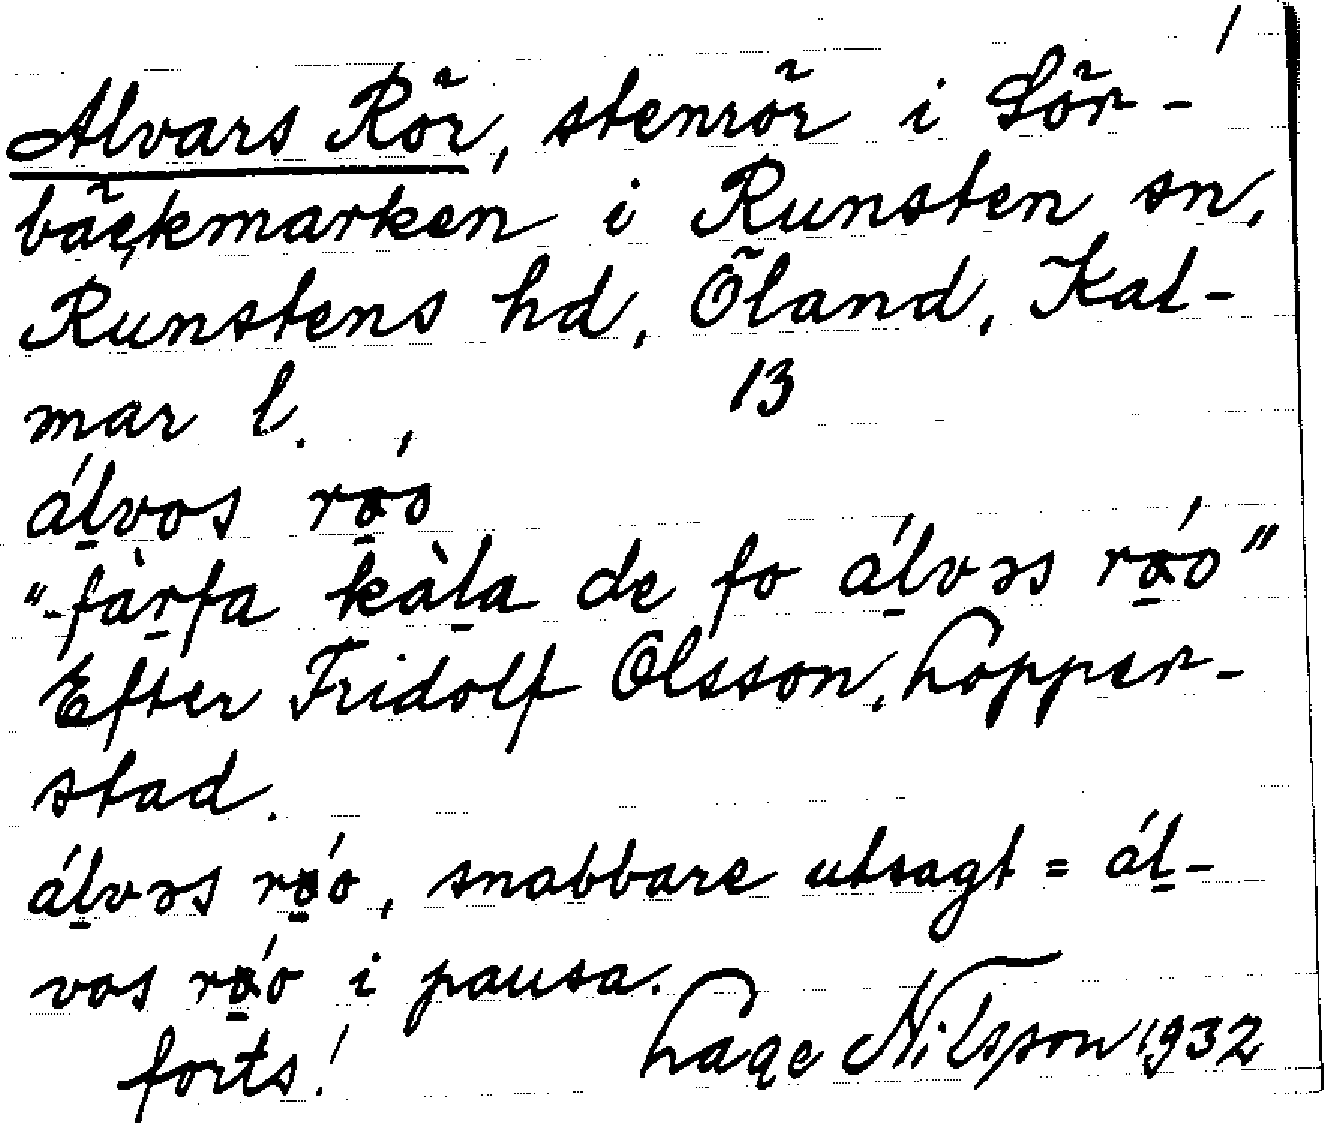 1
Alvars Rör, stenrör i Sör-
bäckmarken i Runsten sn,
Runstens hd, Öland, Kal-
mar l. 13
álvos róo
"-fàrfa kàla de fo álvəs róo"
Efter Fridolf Olsson, Lopper-
stad.
álvəs róo, snabbare utsagt = ál-
vos róo i pausa.
forts! Lage Nilsson 1932